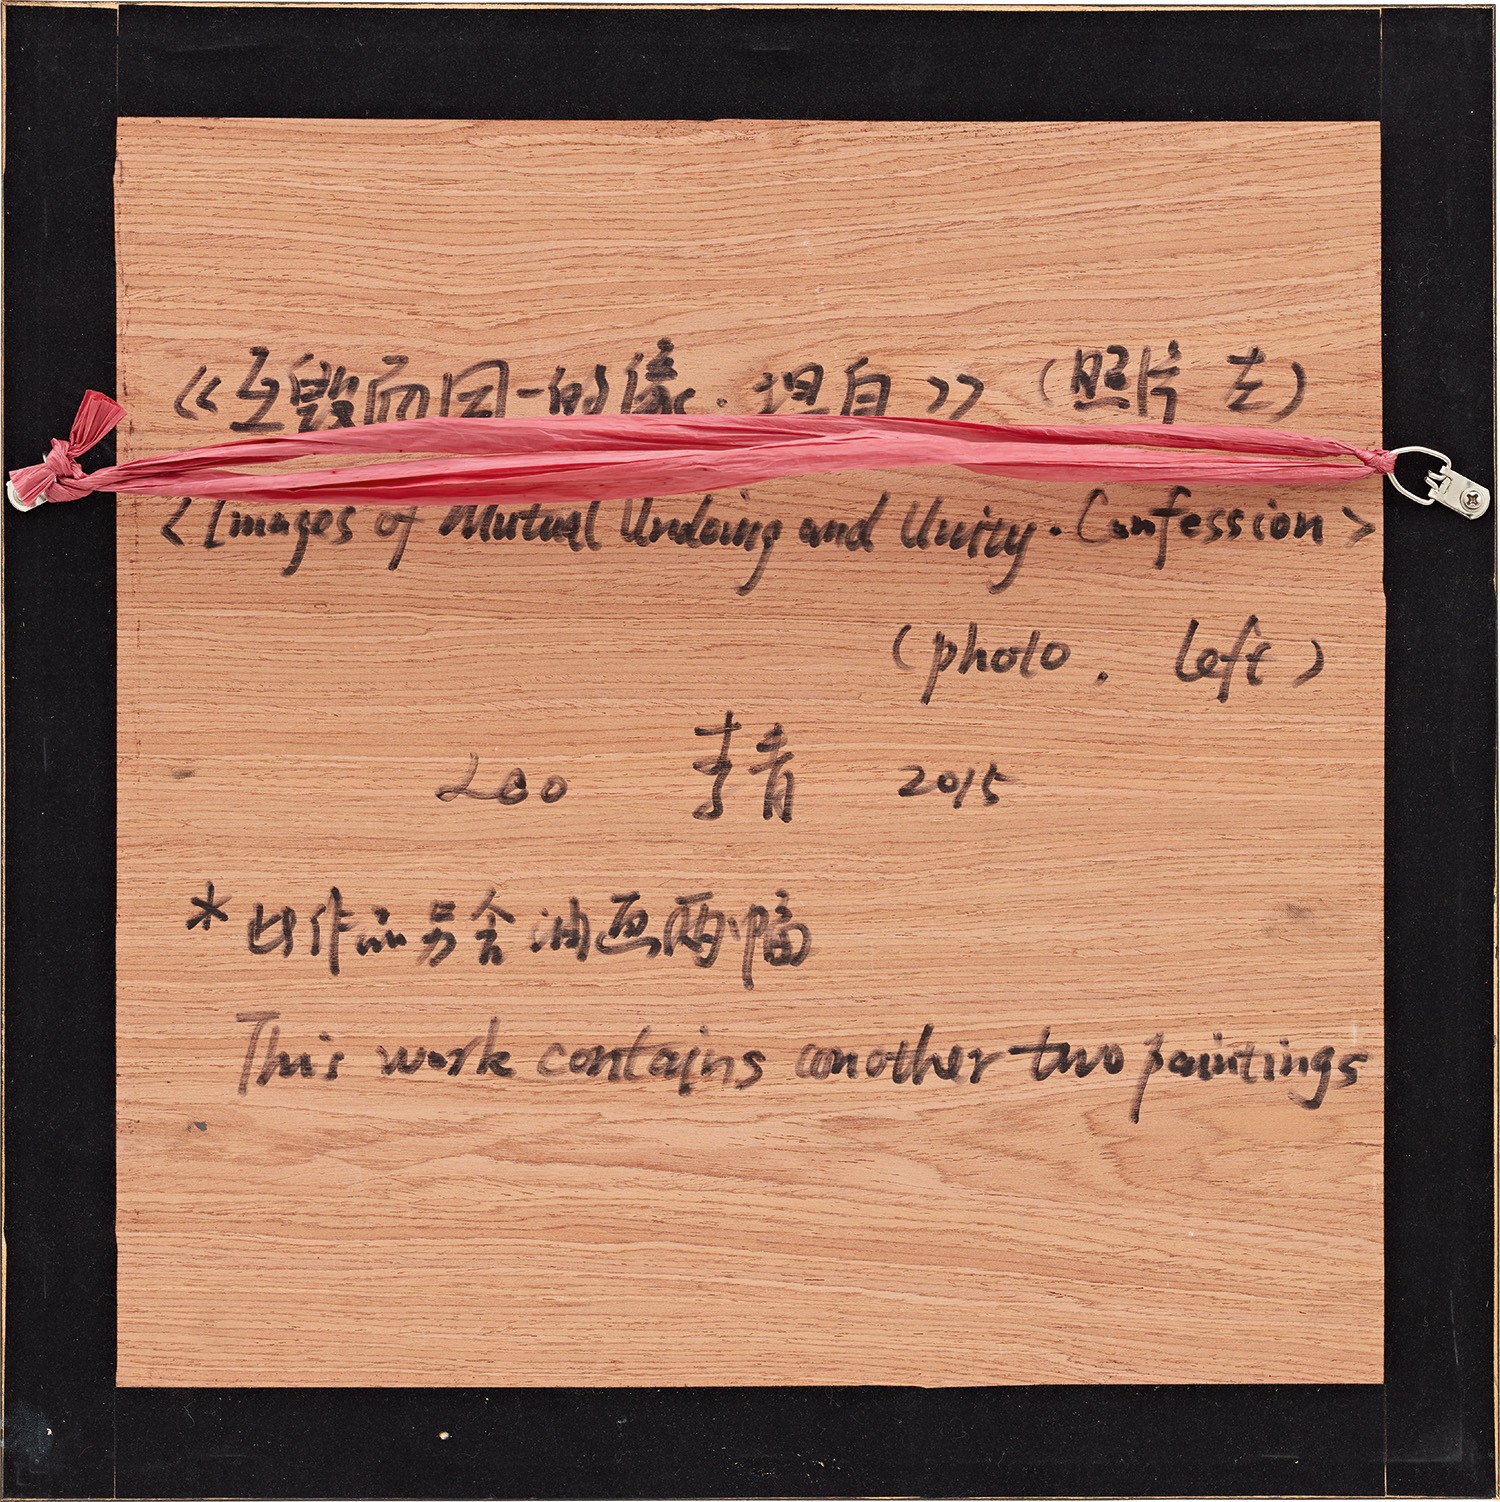 《互毁而同一的像·坦白》（照片 左）
<Images of Mutual Undoing and Unity·Confession>
(photo. left)
李青 2015
*此作品另含油画两幅
This work contains another two paintings